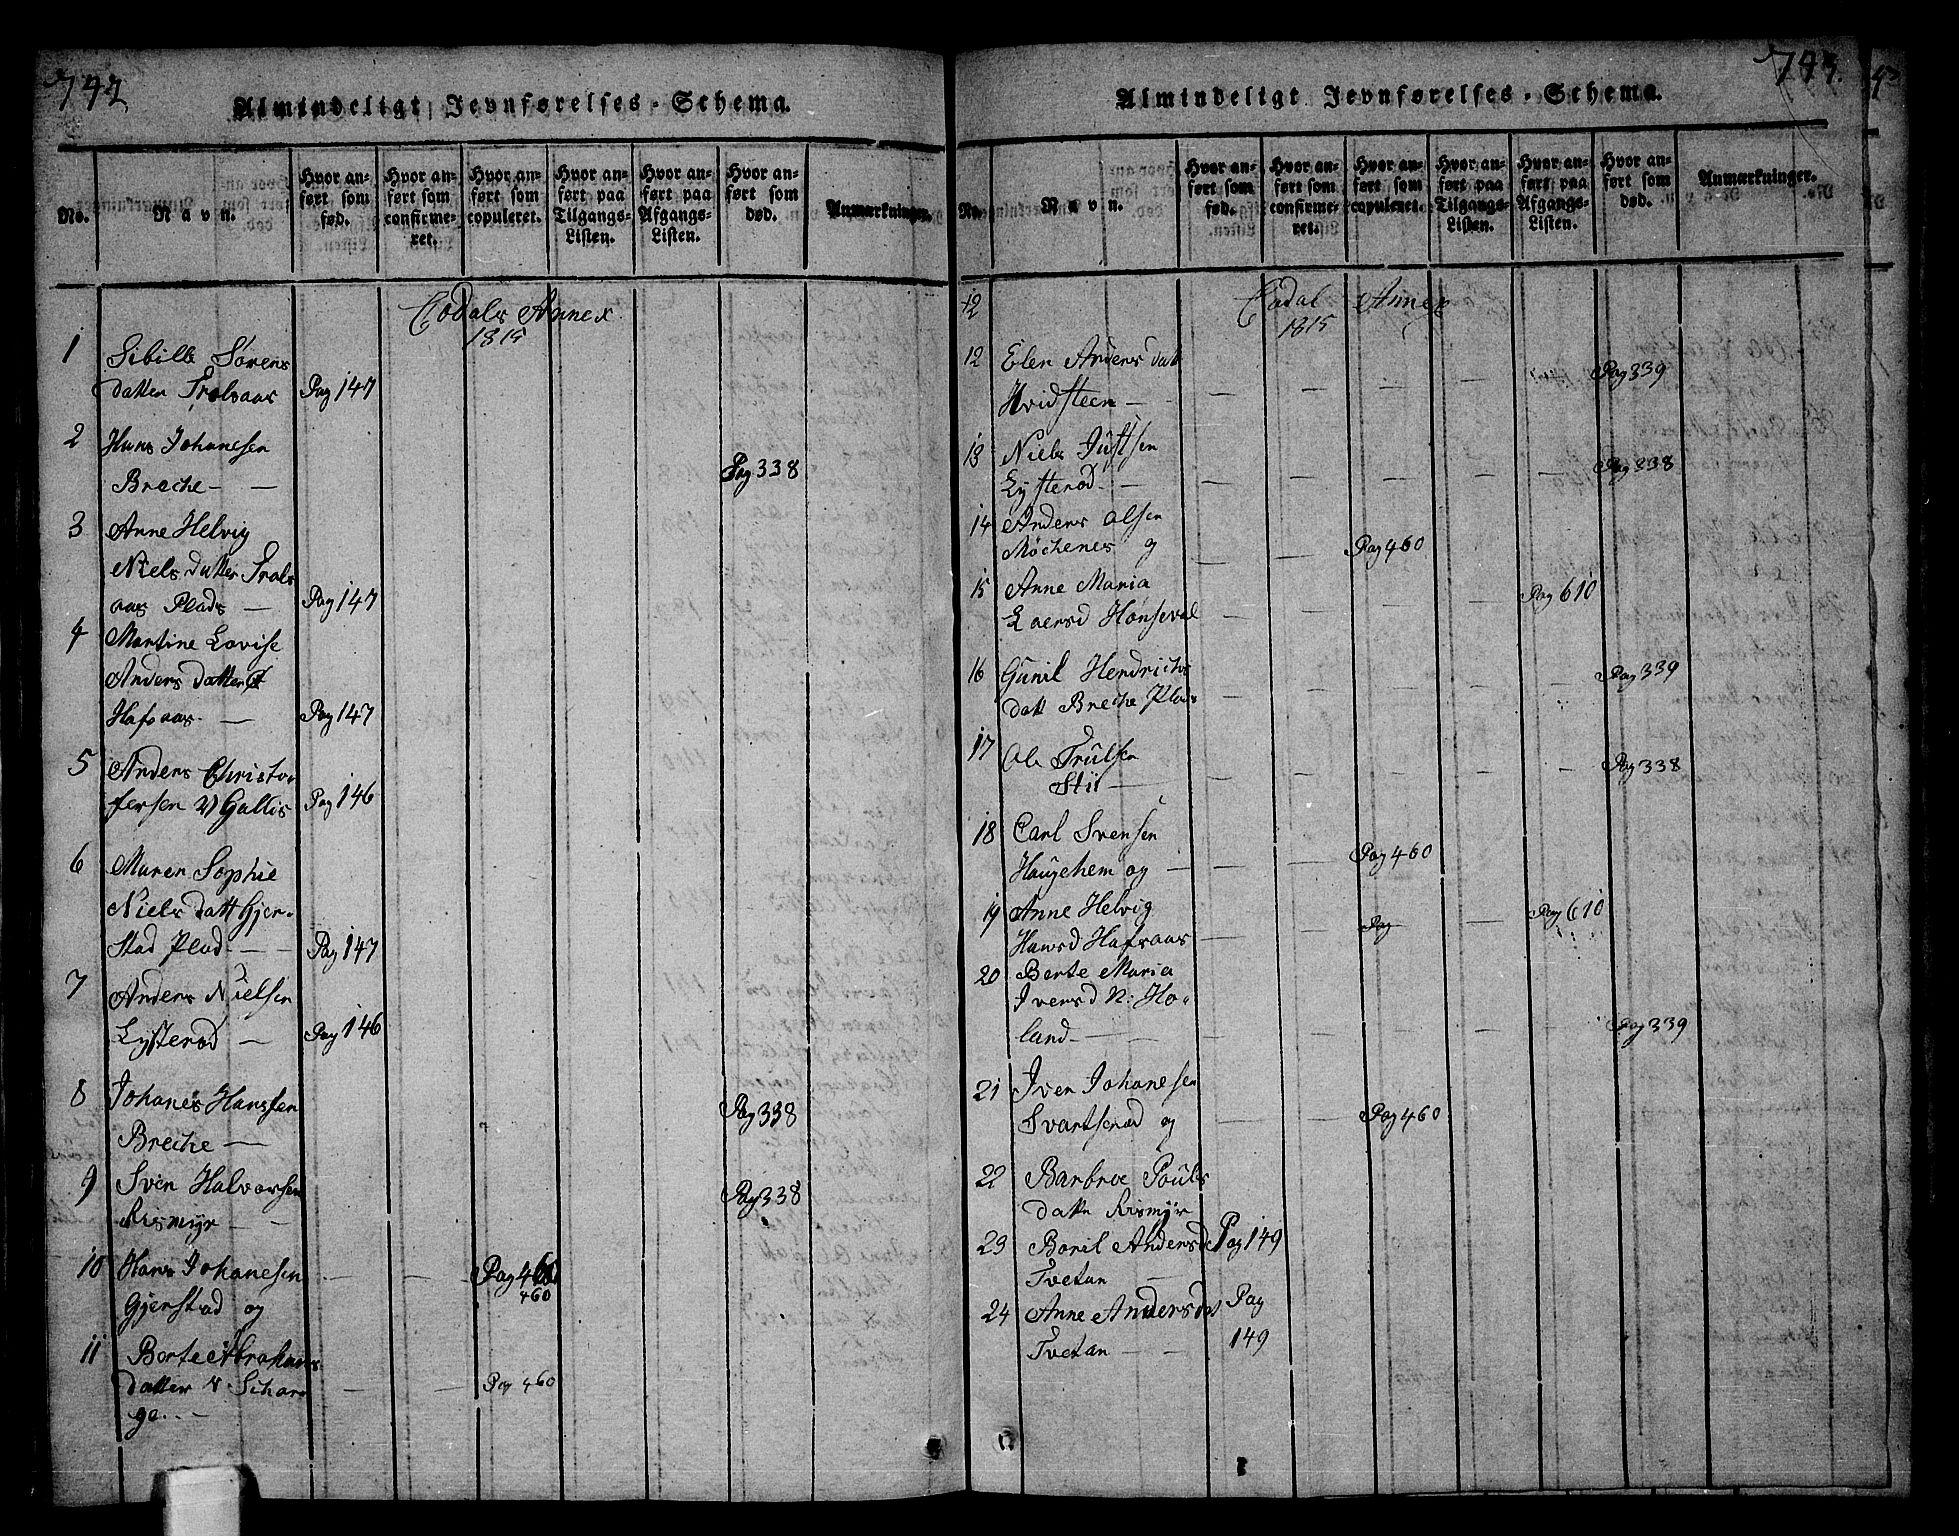 742
Almindeligt Jevnførelses-Schema.
No.
Navn.
Hvor anført som fød.
Hvor anført som confirmeret.
Hvor anført som copuleret.
Hvor anført paa Tilgangs-Listen.
Hvor anført paa Afgangs-Listen.
Hvor anført som død.
Anmærkninger.
Eodals Annex
1815
1 Sibille Sørens
datter Trolsaas Pag 147
2 Hans Johanesen
Breche — — Pag 338
3 Anne Helvig
Niels datter Trols
aas Plads — Pag 147
4 Martine Lovise
Anders datter
Hafsaas — Pag 147
5 Anders Christo
fersen V Gallis Pag 146
6 Maren Sophie
Niels datt Gjer-
stad Plad — Pag 147
7 Anders Nielsen
Lysterød — Pag 146
8 Johanes Hansen
Breche — Pag 338
9 Sven Halvorsen
Rismyr — — Pag 338
10 Hans Johanesen — — Pag 460
460
Gjerstad og
11 Berte Abrahams
datter V Schar — — Pag 460
ge. —
743.
Almindeligt Jevnførelses-Schema.
No.
Navn.
Hvor anført som fød.
Hvor anført som confirmeret.
Hvor anført som copuleret.
Hvor anført paa Tilgangs-Listen.
Hvor anført paa Afgangs-Listen.
Hvor anført som død.
Anmærkninger.
12 Eodal Annex
1815
12 Elen Anders datt
Hvidsteen — — — — — Pag 339
13 Niels Justsen
Lysterød — — — — — — Pag 338
14 Anders Olsen
Møchenes og — — Pag 460
15 Anne Maria
Laersd Hønseval — — — — Pag 610
16 Gunil Hendrichs
datt Breche Plas — — — — — Pag 339
17 Ole Trulsen
Stii — — — — — — Pag 338
18 Carl Svensen
Haugehem og — — — Pag 460
19 Anne Helvig
Hansd Hafsaas — — Pag — Pag 610
20 Berte Maria
Iversd N: Ho-
land — — — — — — Pag 339
21 Iver Johanesen
Svartserød og — — Pag 460
22 Barbroe Pouls
datter Rismyr
23 Boril Andersd Pag 149
Tvetan —
24 Anne Andersdat Pag
Tvetan — — 149